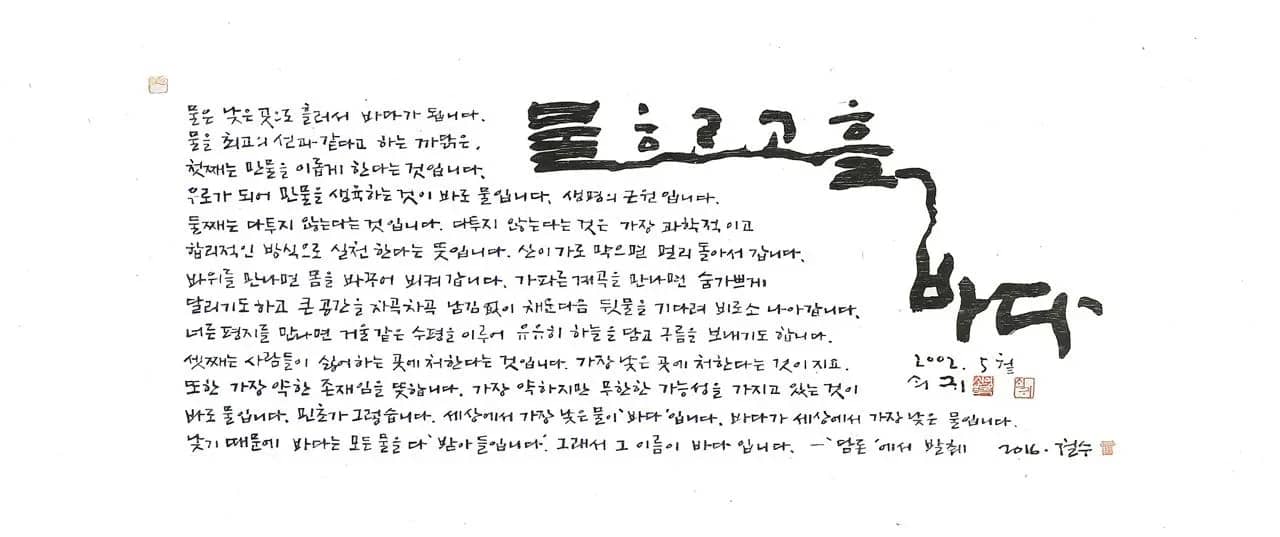 물은 낮은 곳으로 흘러서 바다가 됩니다.
물을 최고의 선과 같다고 하는 까닭은,
첫째는 만물을 이롭게 한다는 것입니다.
우로가 되어 만물을 생육하는 것이 바로 물입니다. 생명의 근원입니다.
둘째는 다투지 않는다는 것입니다. 다투지 않는다는 것은 가장 과학적이고
합리적인 방식으로 실천한다는 뜻입니다. 산이 가로 막으면 멀리 돌아서 갑니다.
바위를 만나면 몸을 바꾸어 비켜 갑니다. 가파른 계곡을 만나면 숨가쁘게
달리기도 하고 큰 공간을 차곡차곡 남김없이 채운다음 뒷물을 기다려 비로소 나아갑니다.
너른 평지를 만나면 거울같은 수평을 이루어 유유히 하늘을 담고 구름을 보내기도 합니다.
셋째는 사람들이 싫어하는 곳에 처한다는 것입니다. 가장 낮은 곳에 처한다는 것이지요.
또한 가장 약한 존재임을 뜻합니다. 가장 약하지만 무한한 가능성을 가지고 있는 것이
바로 물입니다. 민초가 그렇습니다. 세상에서 가장 낮은 물이 '바다'입니다. 바다가 세상에서 가장 낮은 물입니다.
낮기 때문에 바다는 모든 물을 다 '받아들입니다'. 그래서 그 이름이 바다입니다. —'담론'에서 발췌 2016. 철수
물 흐르고 흘
바다
2002. 5월
쇠귀